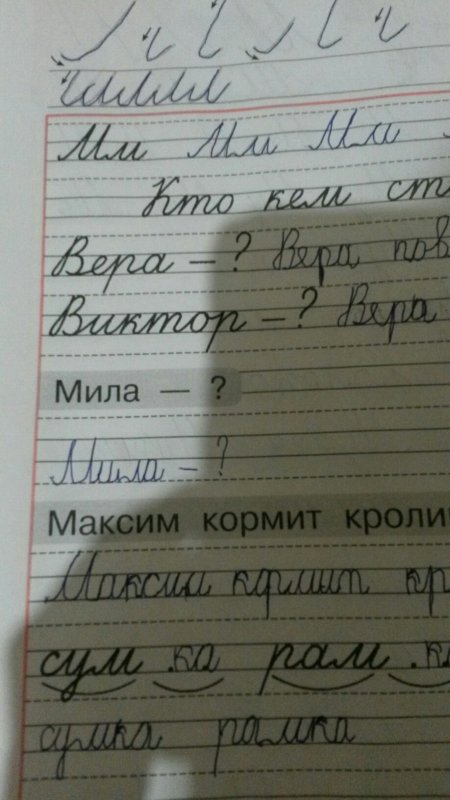 Мм Мм Мм
Кто кем ст
Вера – ? Вера пов
Виктор – ? Вера
Мила — ?
Мила – ?
Максим кормит кроли
Максим кормит кр
сум . ка рам . к
сумка рамка